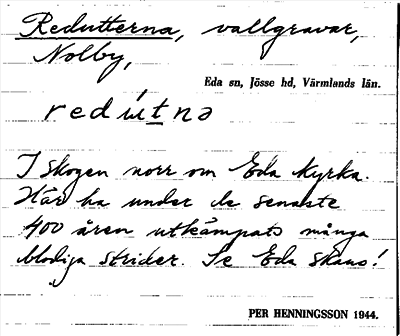 Redutterna, vallgravar,
Nolby,
Eda sn, Jösse hd, Värmlands län.
redútnə
I skogen norr om Eda Kyrka.
Här ha under de senaste
400 åren utkämpats många
blodiga strider. Se Eda skans!
PER HENNINGSSON 1944.